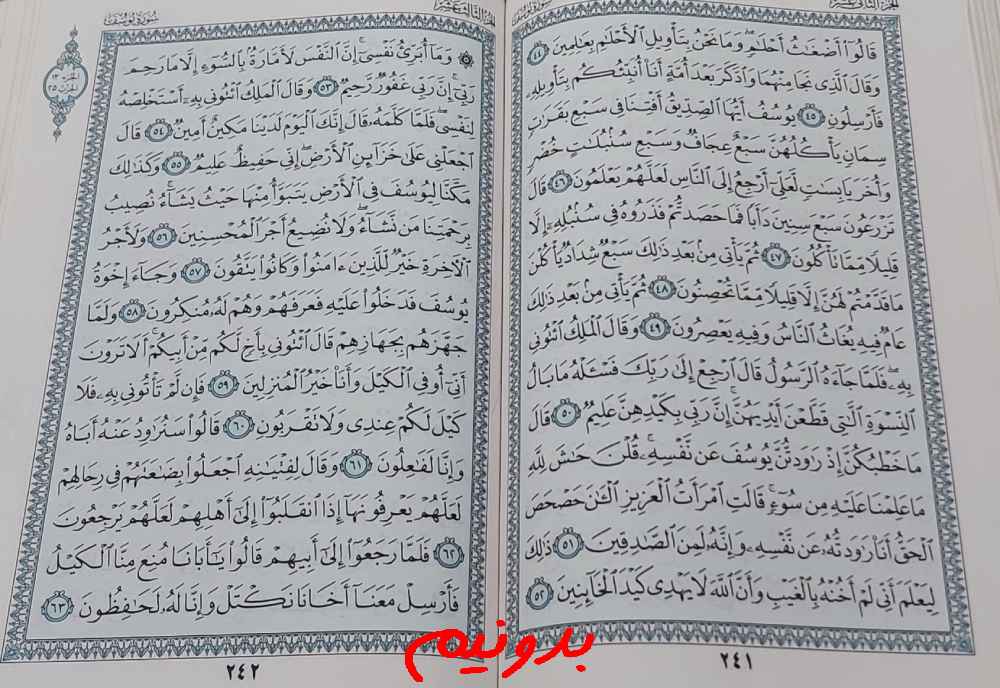 الجزء الثاني عشر
قَالُوٓا۟ أَضْغَٰثُ أَحْلَٰمٍ وَمَا نَحْنُ بِتَأْوِيلِ ٱلْأَحْلَٰمِ بِعَٰلِمِينَ ٤٤
وَقَالَ ٱلَّذِى نَجَا مِنْهُمَا وَٱدَّكَرَ بَعْدَ أُمَّةٍ أَنَا۠ أُنَبِّئُكُم بِتَأْوِيلِهِۦ
فَأَرْسِلُونِ ٤٥ يُوسُفُ أَيُّهَا ٱلصِّدِّيقُ أَفْتِنَا فِى سَبْعِ بَقَرَٰتٍ
سِمَانٍ يَأْكُلُهُنَّ سَبْعٌ عِجَافٌ وَسَبْعِ سُنۢبُلَٰتٍ خُضْرٍ
وَأُخَرَ يَابِسَٰتٍ لَّعَلِّىٓ أَرْجِعُ إِلَى ٱلنَّاسِ لَعَلَّهُمْ يَعْلَمُونَ ٤٦ قَالَ
تَزْرَعُونَ سَبْعَ سِنِينَ دَأَبًا فَمَا حَصَدتُّمْ فَذَرُوهُ فِى سُنۢبُلِهِۦٓ إِلَّا
قَلِيلًا مِّمَّا تَأْكُلُونَ ٤٧ ثُمَّ يَأْتِى مِنۢ بَعْدِ ذَٰلِكَ سَبْعٌ شِدَادٌ يَأْكُلْنَ
مَا قَدَّمْتُمْ لَهُنَّ إِلَّا قَلِيلًا مِّمَّا تُحْصِنُونَ ٤٨ ثُمَّ يَأْتِى مِنۢ بَعْدِ ذَٰلِكَ
عَامٌ فِيهِ يُغَاثُ ٱلنَّاسُ وَفِيهِ يَعْصِرُونَ ٤٩ وَقَالَ ٱلْمَلِكُ ٱئْتُونِى
بِهِۦ فَلَمَّا جَآءَهُ ٱلرَّسُولُ قَالَ ٱرْجِعْ إِلَىٰ رَبِّكَ فَسْـَٔلْهُ مَا بَالُ
ٱلنِّسْوَةِ ٱلَّٰتِى قَطَّعْنَ أَيْدِيَهُنَّ إِنَّ رَبِّى بِكَيْدِهِنَّ عَلِيمٌ ٥٠ قَالَ
مَا خَطْبُكُنَّ إِذْ رَٰوَدتُّنَّ يُوسُفَ عَن نَّفْسِهِۦ قُلْنَ حَٰشَ لِلَّهِ
مَا عَلِمْنَا عَلَيْهِ مِن سُوٓءٍ قَالَتِ ٱمْرَأَتُ ٱلْعَزِيزِ ٱلْـَٰٔنَ حَصْحَصَ
ٱلْحَقُّ أَنَا۠ رَٰوَدتُّهُۥ عَن نَّفْسِهِۦ وَإِنَّهُۥ لَمِنَ ٱلصَّٰدِقِينَ ٥١ ذَٰلِكَ
لِيَعْلَمَ أَنِّى لَمْ أَخُنْهُ بِٱلْغَيْبِ وَأَنَّ ٱللَّهَ لَا يَهْدِى كَيْدَ ٱلْخَآئِنِينَ ٥٢
٢٤١
الجزء الثالث عشر
سورة يوسف
الجزء ١٣
الحزب ٢٥
وَمَآ أُبَرِّئُ نَفْسِىٓ إِنَّ ٱلنَّفْسَ لَأَمَّارَةٌۢ بِٱلسُّوٓءِ إِلَّا مَا رَحِمَ
رَبِّىٓ إِنَّ رَبِّى غَفُورٌ رَّحِيمٌ ٥٣ وَقَالَ ٱلْمَلِكُ ٱئْتُونِى بِهِۦٓ أَسْتَخْلِصْهُ
لِنَفْسِى فَلَمَّا كَلَّمَهُۥ قَالَ إِنَّكَ ٱلْيَوْمَ لَدَيْنَا مَكِينٌ أَمِينٌ ٥٤ قَالَ
ٱجْعَلْنِى عَلَىٰ خَزَآئِنِ ٱلْأَرْضِ إِنِّى حَفِيظٌ عَلِيمٌ ٥٥ وَكَذَٰلِكَ
مَكَّنَّا لِيُوسُفَ فِى ٱلْأَرْضِ يَتَبَوَّأُ مِنْهَا حَيْثُ يَشَآءُ نُصِيبُ
بِرَحْمَتِنَا مَن نَّشَآءُ وَلَا نُضِيعُ أَجْرَ ٱلْمُحْسِنِينَ ٥٦ وَلَأَجْرُ
ٱلْـَٔاخِرَةِ خَيْرٌ لِّلَّذِينَ ءَامَنُوا۟ وَكَانُوا۟ يَتَّقُونَ ٥٧ وَجَآءَ إِخْوَةُ
يُوسُفَ فَدَخَلُوا۟ عَلَيْهِ فَعَرَفَهُمْ وَهُمْ لَهُۥ مُنكِرُونَ ٥٨ وَلَمَّا
جَهَّزَهُم بِجَهَازِهِمْ قَالَ ٱئْتُونِى بِأَخٍ لَّكُم مِّنْ أَبِيكُمْ أَلَا تَرَوْنَ
أَنِّىٓ أُوفِى ٱلْكَيْلَ وَأَنَا۠ خَيْرُ ٱلْمُنزِلِينَ ٥٩ فَإِن لَّمْ تَأْتُونِى بِهِۦ فَلَا
كَيْلَ لَكُمْ عِندِى وَلَا تَقْرَبُونِ ٦٠ قَالُوا۟ سَنُرَٰوِدُ عَنْهُ أَبَاهُ
وَإِنَّا لَفَٰعِلُونَ ٦١ وَقَالَ لِفِتْيَٰنِهِ ٱجْعَلُوا۟ بِضَٰعَتَهُمْ فِى رِحَالِهِمْ
لَعَلَّهُمْ يَعْرِفُونَهَآ إِذَا ٱنقَلَبُوٓا۟ إِلَىٰٓ أَهْلِهِمْ لَعَلَّهُمْ يَرْجِعُونَ
٦٢ فَلَمَّا رَجَعُوٓا۟ إِلَىٰٓ أَبِيهِمْ قَالُوا۟ يَٰٓأَبَانَا مُنِعَ مِنَّا ٱلْكَيْلُ
فَأَرْسِلْ مَعَنَآ أَخَانَا نَكْتَلْ وَإِنَّا لَهُۥ لَحَٰفِظُونَ ٦٣
٢٤٢
بدونیم